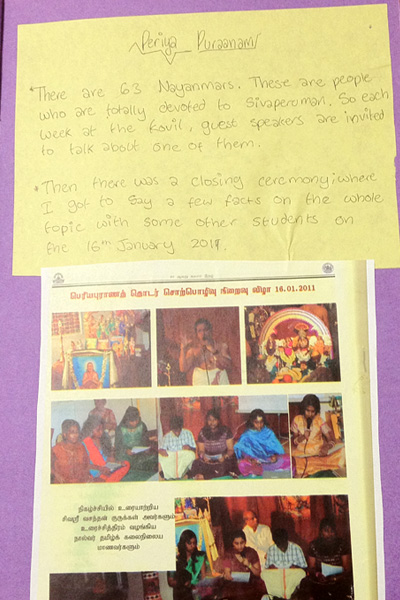 Periya Puraanam
* There are 63 Nayanmars. These are people
who are totally devoted to Sivaperuman. So each
week at the Kovil, guest speakers are invited
to talk about one of them.
* Then there was a closing ceremony; where
I got to say a few facts on the whole
topic with some other students on
the 16th January 2011.
பெரியபுராணத் தொடர் சொற்பொழிவு நிறைவு விழா 16.01.2011
நிகழ்ச்சியில் உரையாற்றிய
சிவஸ்ரீ வசந்தன் குருக்கள் அவர்களும்
உரைச்சித்திரம் வழங்கிய
நால்வர் தமிழ்க் கலைநிலைய
மாணவர்களும்